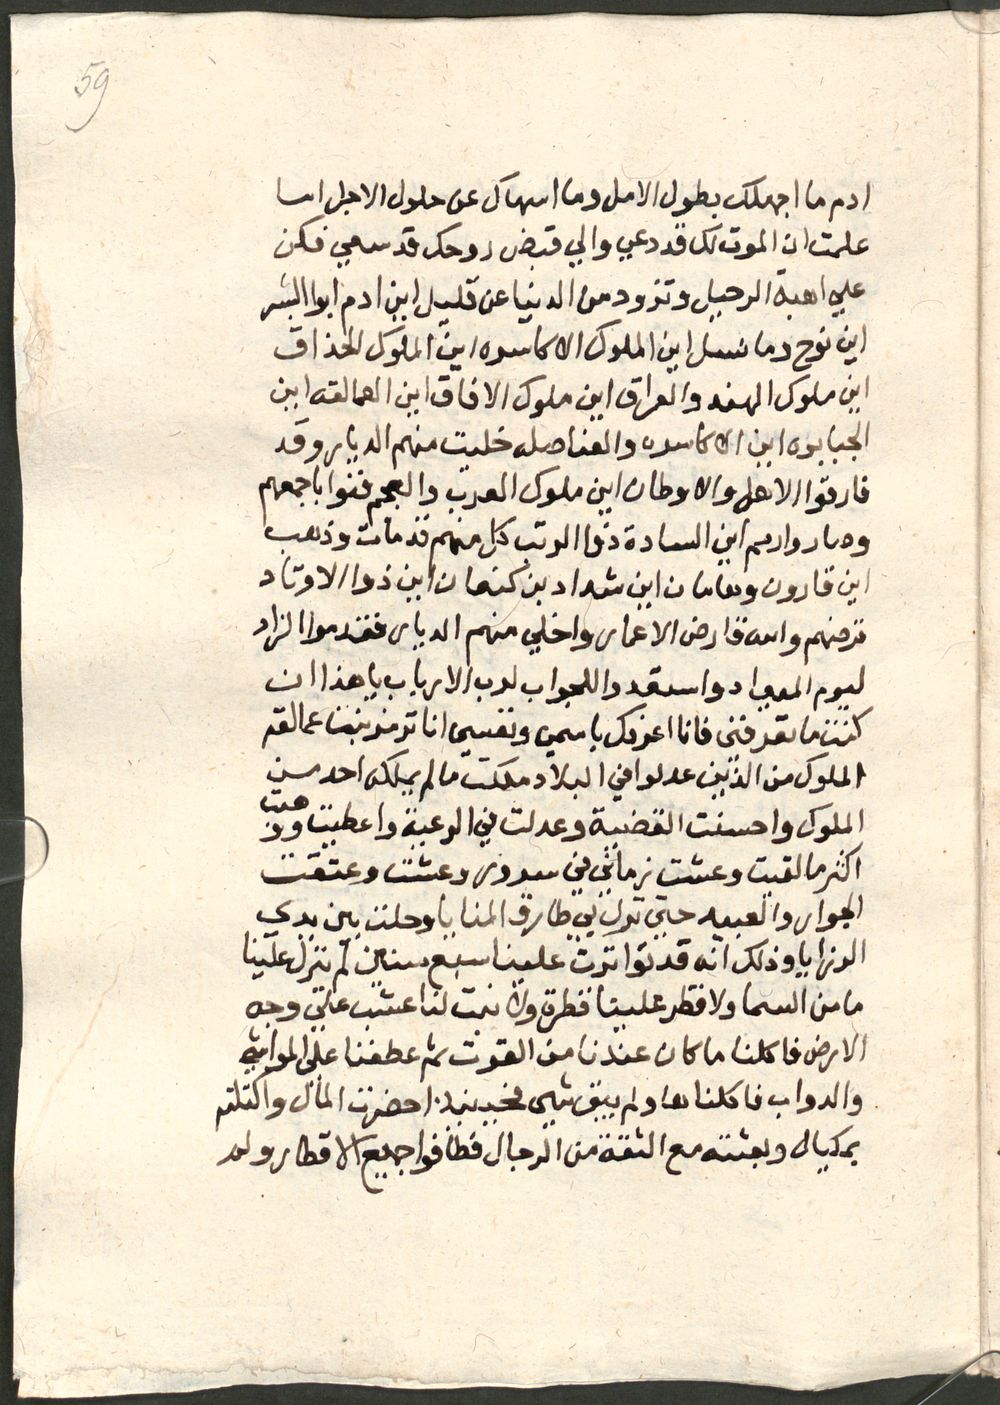 59
ادم ما اجهلك بطول الامل وما اسهاك عن حلول الاجل اما
علمت ان الموت لك قد دعي والي قبض روحك قد سعي فكن
علي اهبة الرحيل وتزود من الدنيا عن قليل اين ادم ابوا البشر
اين نوح وما نسل اين الملوك الاكاسره اين الملوك الحذاق
اين ملوك الهند والعراق اين ملوك الافاق اين العمالقه اين
الجبابره اين الاكاسره والعناصله خليت منهم الديار وقد
فارقوا الاهل والاوطان اين ملوك العرب والعجم فنوا باجمعهم
وصاروا رمم اين السادة ذوا الرتب كل منهم قد مات وذهب
اين قارون وهامان اين شداد بن كنعان اين ذوا الاوتاد
قرضهم والله قارض الاعمار واخلي منهم الديار فقدموا الزاد
ليوم المعاد واستعدوا للجواب لرب الارباب يا هذا ان
كنت ما تعرفني فانا اعرفك باسمي ونفسي انا ترمز بنت عمالقه
الملوك من الذين عدلوا في البلاد ملكت ما لم يملكه احد من
الملوك واحسنت القضية وعدلت في الرعية واعطيت ووهبت
اكثر ما لقيت وعشت زماني في سرور وعشت وعتقت
الجوار والعبيد حتي نزل بي طارق المنايا وحلت بين يدي
الرزايا وذلك انه قد تواترت علينا سبع سنين لم تنزل علينا
ما من السما ولا قطر علينا قطرة ولا نبت لنا عشب علي وجه
الارض فاكلنا ما كان عندنا من القوت ثم عطفنا علي المواشي
والدواب فاكلناها ولم يبق شي فحينيذ احضرت المال واكتلته
بمكيال وبعثته مع الثقة من الرجال فطافوا جميع الاقطار ولم